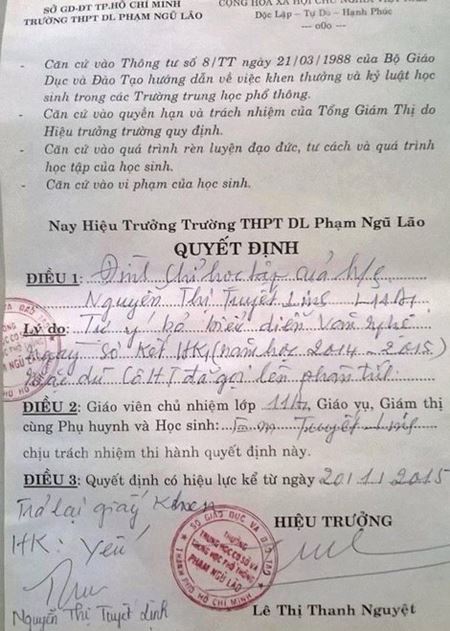 SỞ GD-ĐT TP.HỒ CHÍ MINH
TRƯỜNG THPT DL PHẠM NGŨ LÃO
CỘNG HÒA XÃ HỘI CHỦ NGHĨA VIỆT NAM
Độc Lập – Tự Do – Hạnh Phúc
--- o0o ---
- Căn cứ vào Thông tư số 8/TT ngày 21/03/1988 của Bộ Giáo
Dục và Đào Tạo hướng dẫn về việc khen thưởng và kỷ luật học
sinh trong các Trường trung học phổ thông.
- Căn cứ vào quyền hạn và trách nhiệm của Tổng Giám Thị do
Hiệu trưởng trường quy định.
- Căn cứ vào quá trình rèn luyện đạo đức, tư cách và quá trình
học tập của học sinh.
- Căn cứ vào vi phạm của học sinh.
Nay Hiệu Trưởng Trường THPT DL Phạm Ngũ Lão
QUYẾT ĐỊNH
ĐIỀU 1: Đình chỉ học tập của h/s
Nguyễn Thị Tuyết Linh
Lý do: Tự ý bỏ biểu diễn Văn nghệ
ngày Sơ Kết HK1 (năm học 2014 - 2015)
mặc dù Cô HT đã gọi lên phân tích
ĐIỀU 2: Giáo viên chủ nhiệm lớp, Giáo vụ, Giám thị
cùng Phụ huynh và Học sinh: Tuyết Linh
chịu trách nhiệm thi hành quyết định này.
ĐIỀU 3: Quyết định có hiệu lực kể từ ngày 20/1/2015
Trả lại giấy Khen
HK: Yếu
HIỆU TRƯỞNG
SỞ GIÁO DỤC VÀ ĐÀO TẠO
TRƯỜNG
TRUNG HỌC CƠ SỞ VÀ
TRUNG HỌC PHỔ THÔNG
PHẠM NGŨ LÃO
THÀNH PHỐ HỒ CHÍ MINH
Nguyễn Thị Tuyết Linh
Lê Thị Thanh Nguyệt